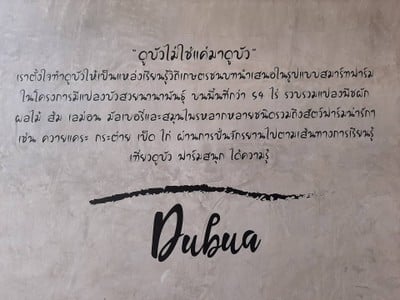 "ดูบัวไม่ใช่แค่มาดูบัว"
เราตั้งใจทำดูบัวให้เป็นแหล่งเรียนรู้วิถีเกษตรชนบทนำเสนอในรูปแบบสมาร์ทฟาร์ม
ในโครงการมีแปลงบัวสวยนานาพันธุ์ บนพื้นที่กว่า 54 ไร่ รวบรวมแปลงพืชผัก
ผลไม้ ส้ม เลม่อน มัลเบอรี่และสมุนไพรหลากหลายชนิดรวมถึงสัตว์ฟาร์มน่ารักๆ
เช่น ควายแคระ กระต่าย เป็ด ไก่ ผ่านการปั่นจักรยานไปตามเส้นทางการเรียนรู้
เที่ยวดูบัว ฟาร์มสนุก ได้ความรู้
Dubua